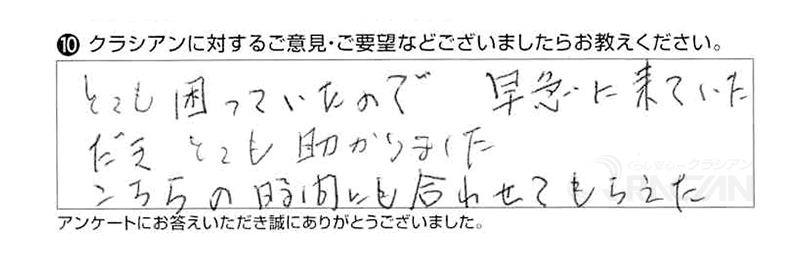 ❿ クラシアンに対するご意見・ご要望などございましたらお教えください。
とても困っていたので 早急に来ていた
だき とても助かりました
こちらの時間にも合わせてもらえた
くらし安心クラシアン
QRACIAN
アンケートにお答えいただき誠にありがとうございました。